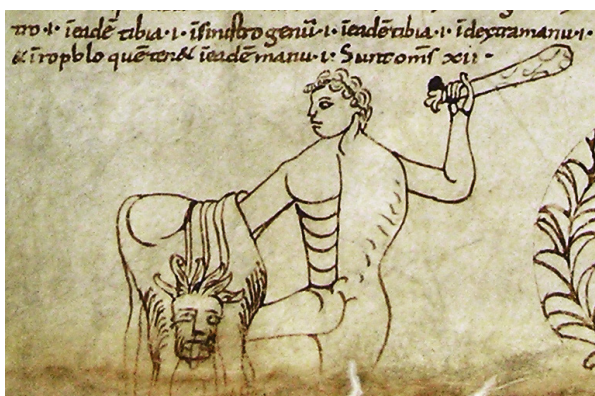 tro·i· īeadē tibia·i· īsinistro genū·i· īeadē tibia·i· īdextra manu·i·
& īropblo quē ten& īeadē manu·i· Sunt om̄s xii·